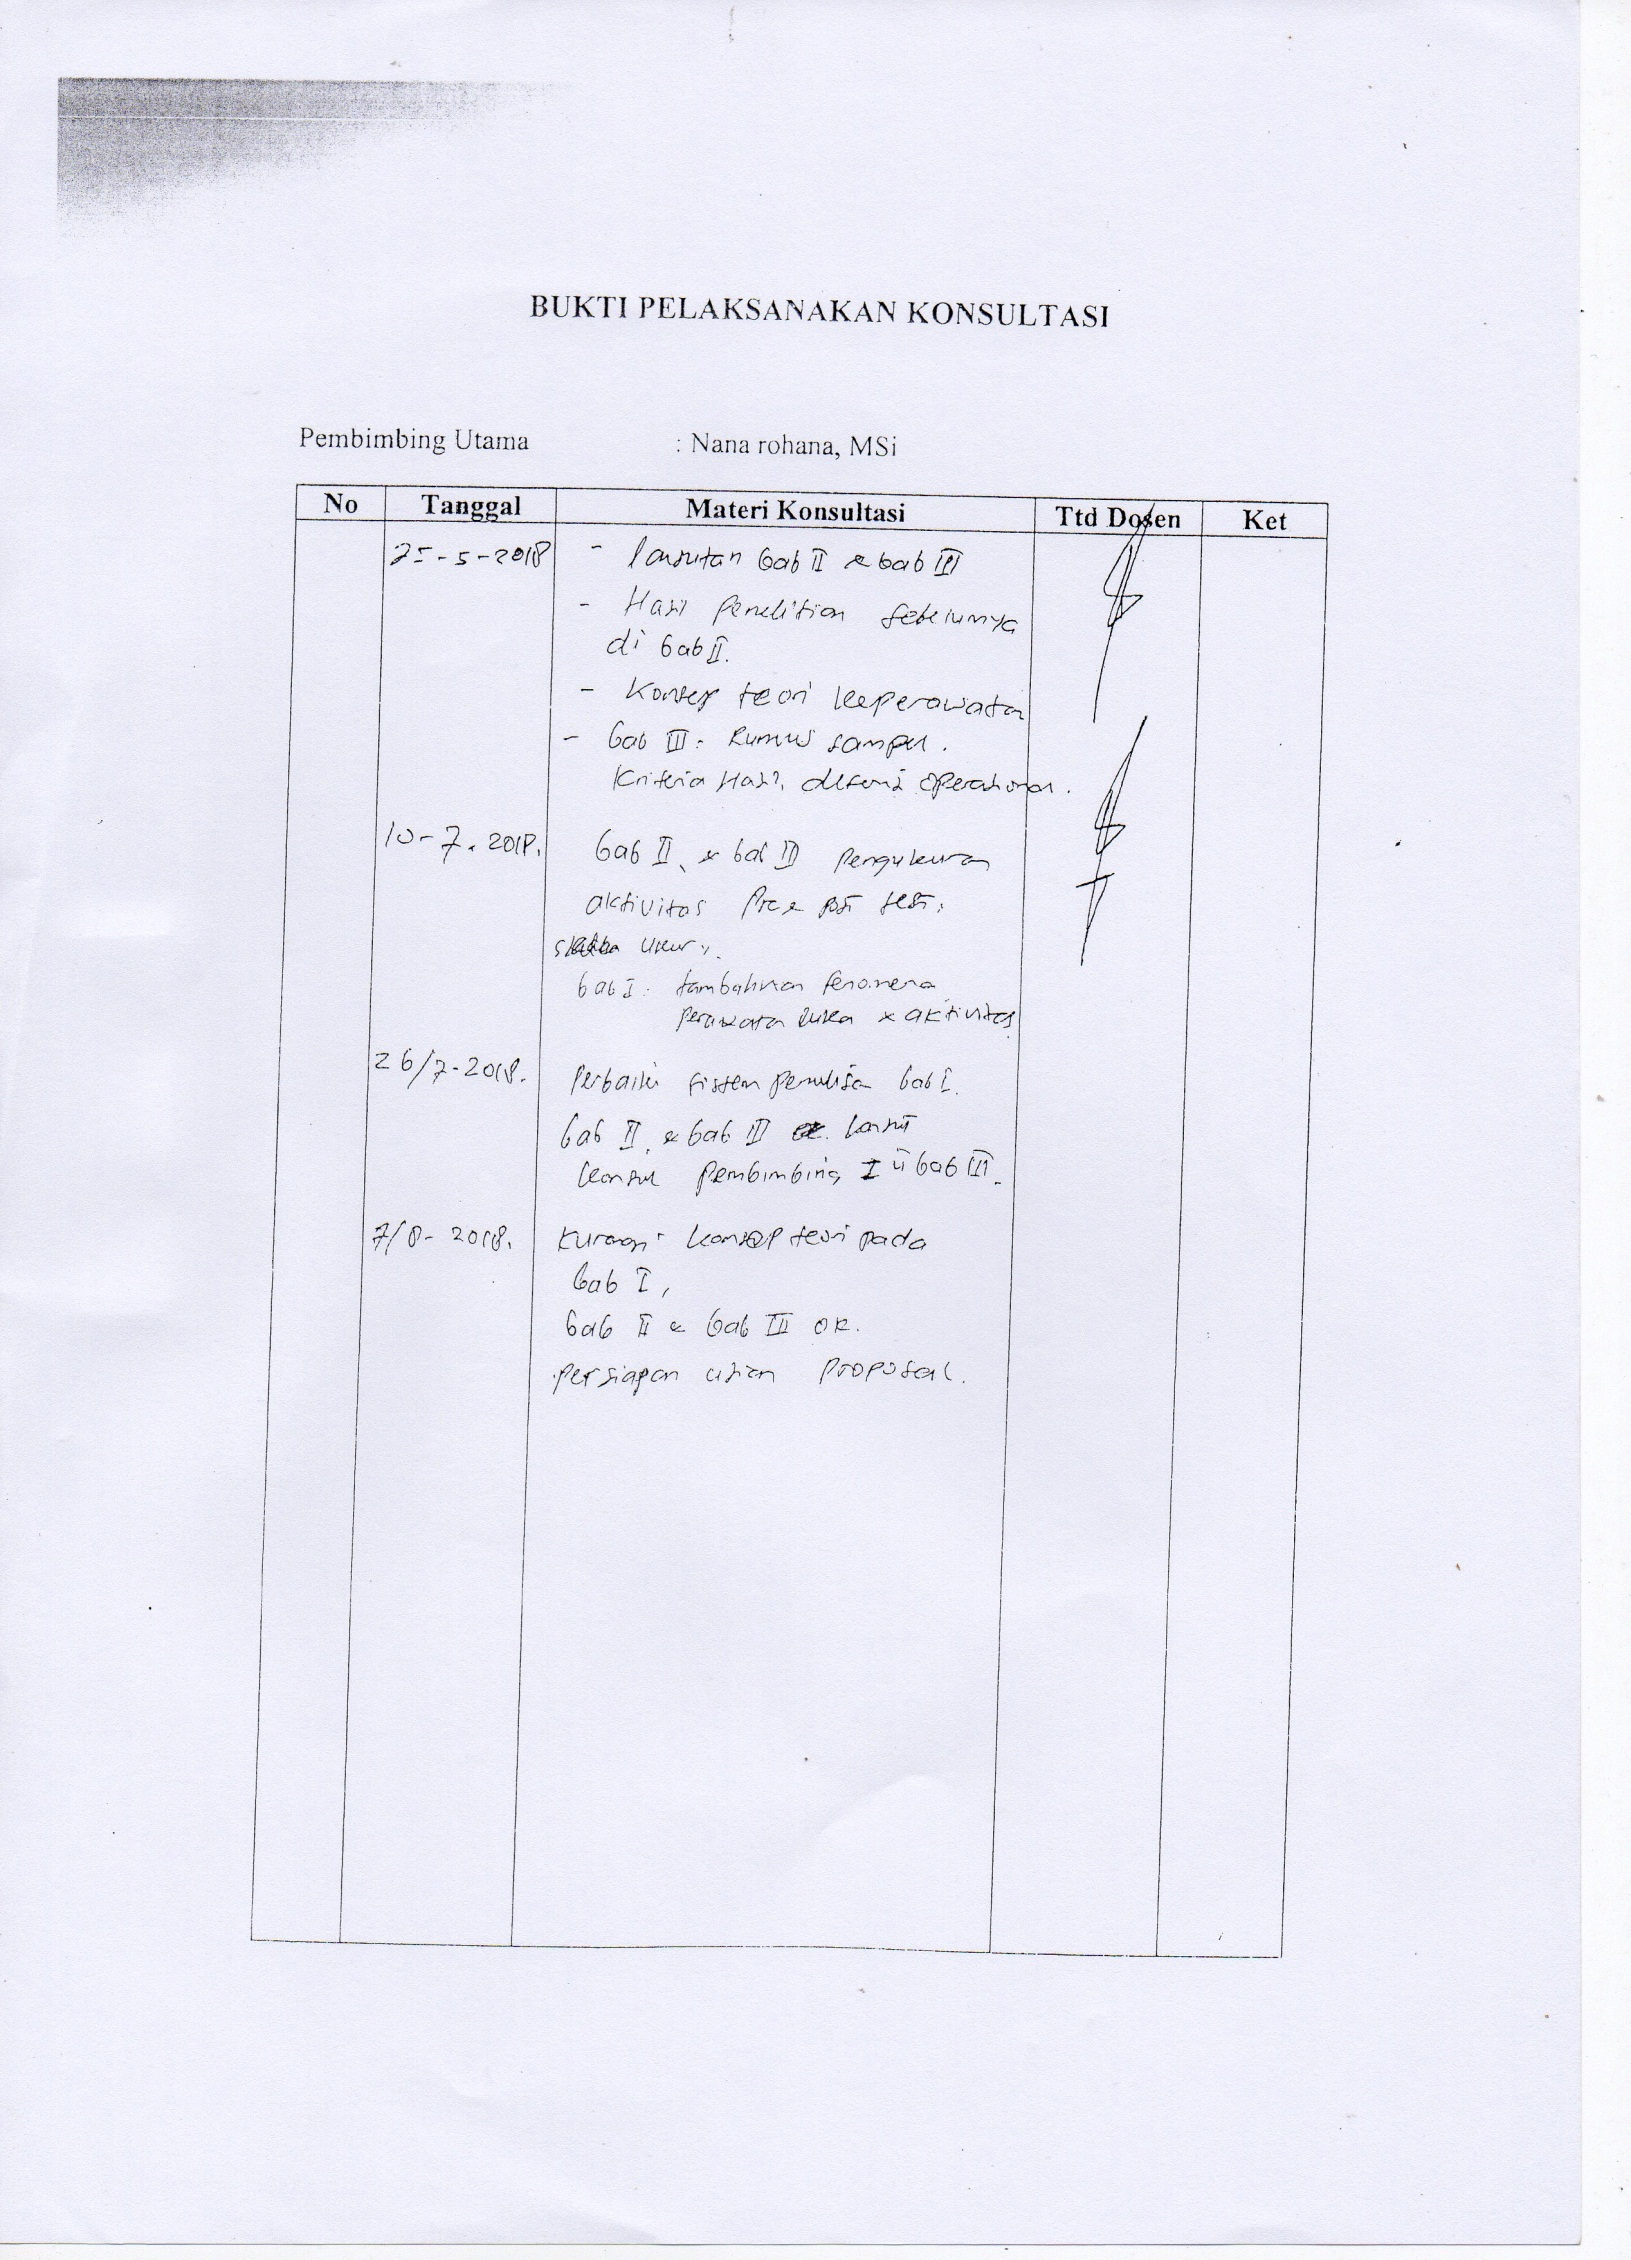 BUKTI PELAKSANAKAN KONSULTASI
Pembimbing Utama : Nana rohana, MSi
No Tanggal Materi Konsultasi Ttd Dosen Ket
25-5-2018 - lanjutan bab II & bab III
- Hasil penelitian sebelumnya
di bab II.
- Konsep teori keperawatan
- bab III: Rumus sampel.
Kriteria Hasil, definisi operasional.
10-7-2018. bab II, & bab III pengukuran
aktivitas Pre & post test,
skala ukur,
bab I: tambahkan fenomena
perawatan luka & aktivitas
26/7-2018. Perbaiki sistem penulisan bab I.
bab II, & bab III lanjut
konsul pembimbing I bab III.
7/8-2018. Kurangi konsep teori pada
bab I,
bab II & bab III ok.
persiapan ujian proposal.